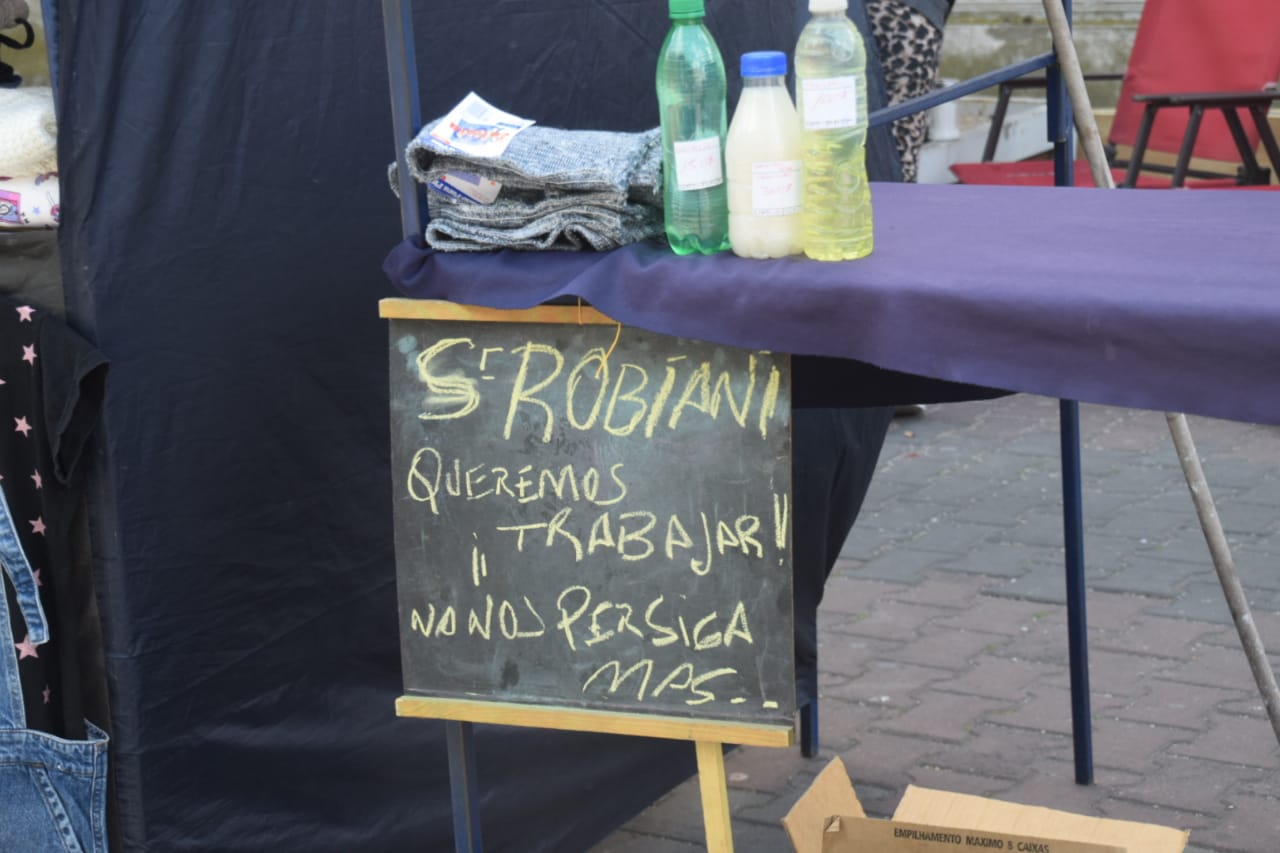 Sr ROBIANI
QUEREMOS
TRABAJAR!
¡¡
NO NOS PERSIGA
MAS.-
EMPILHAMENTO MAXIMO 8 CAIXAS